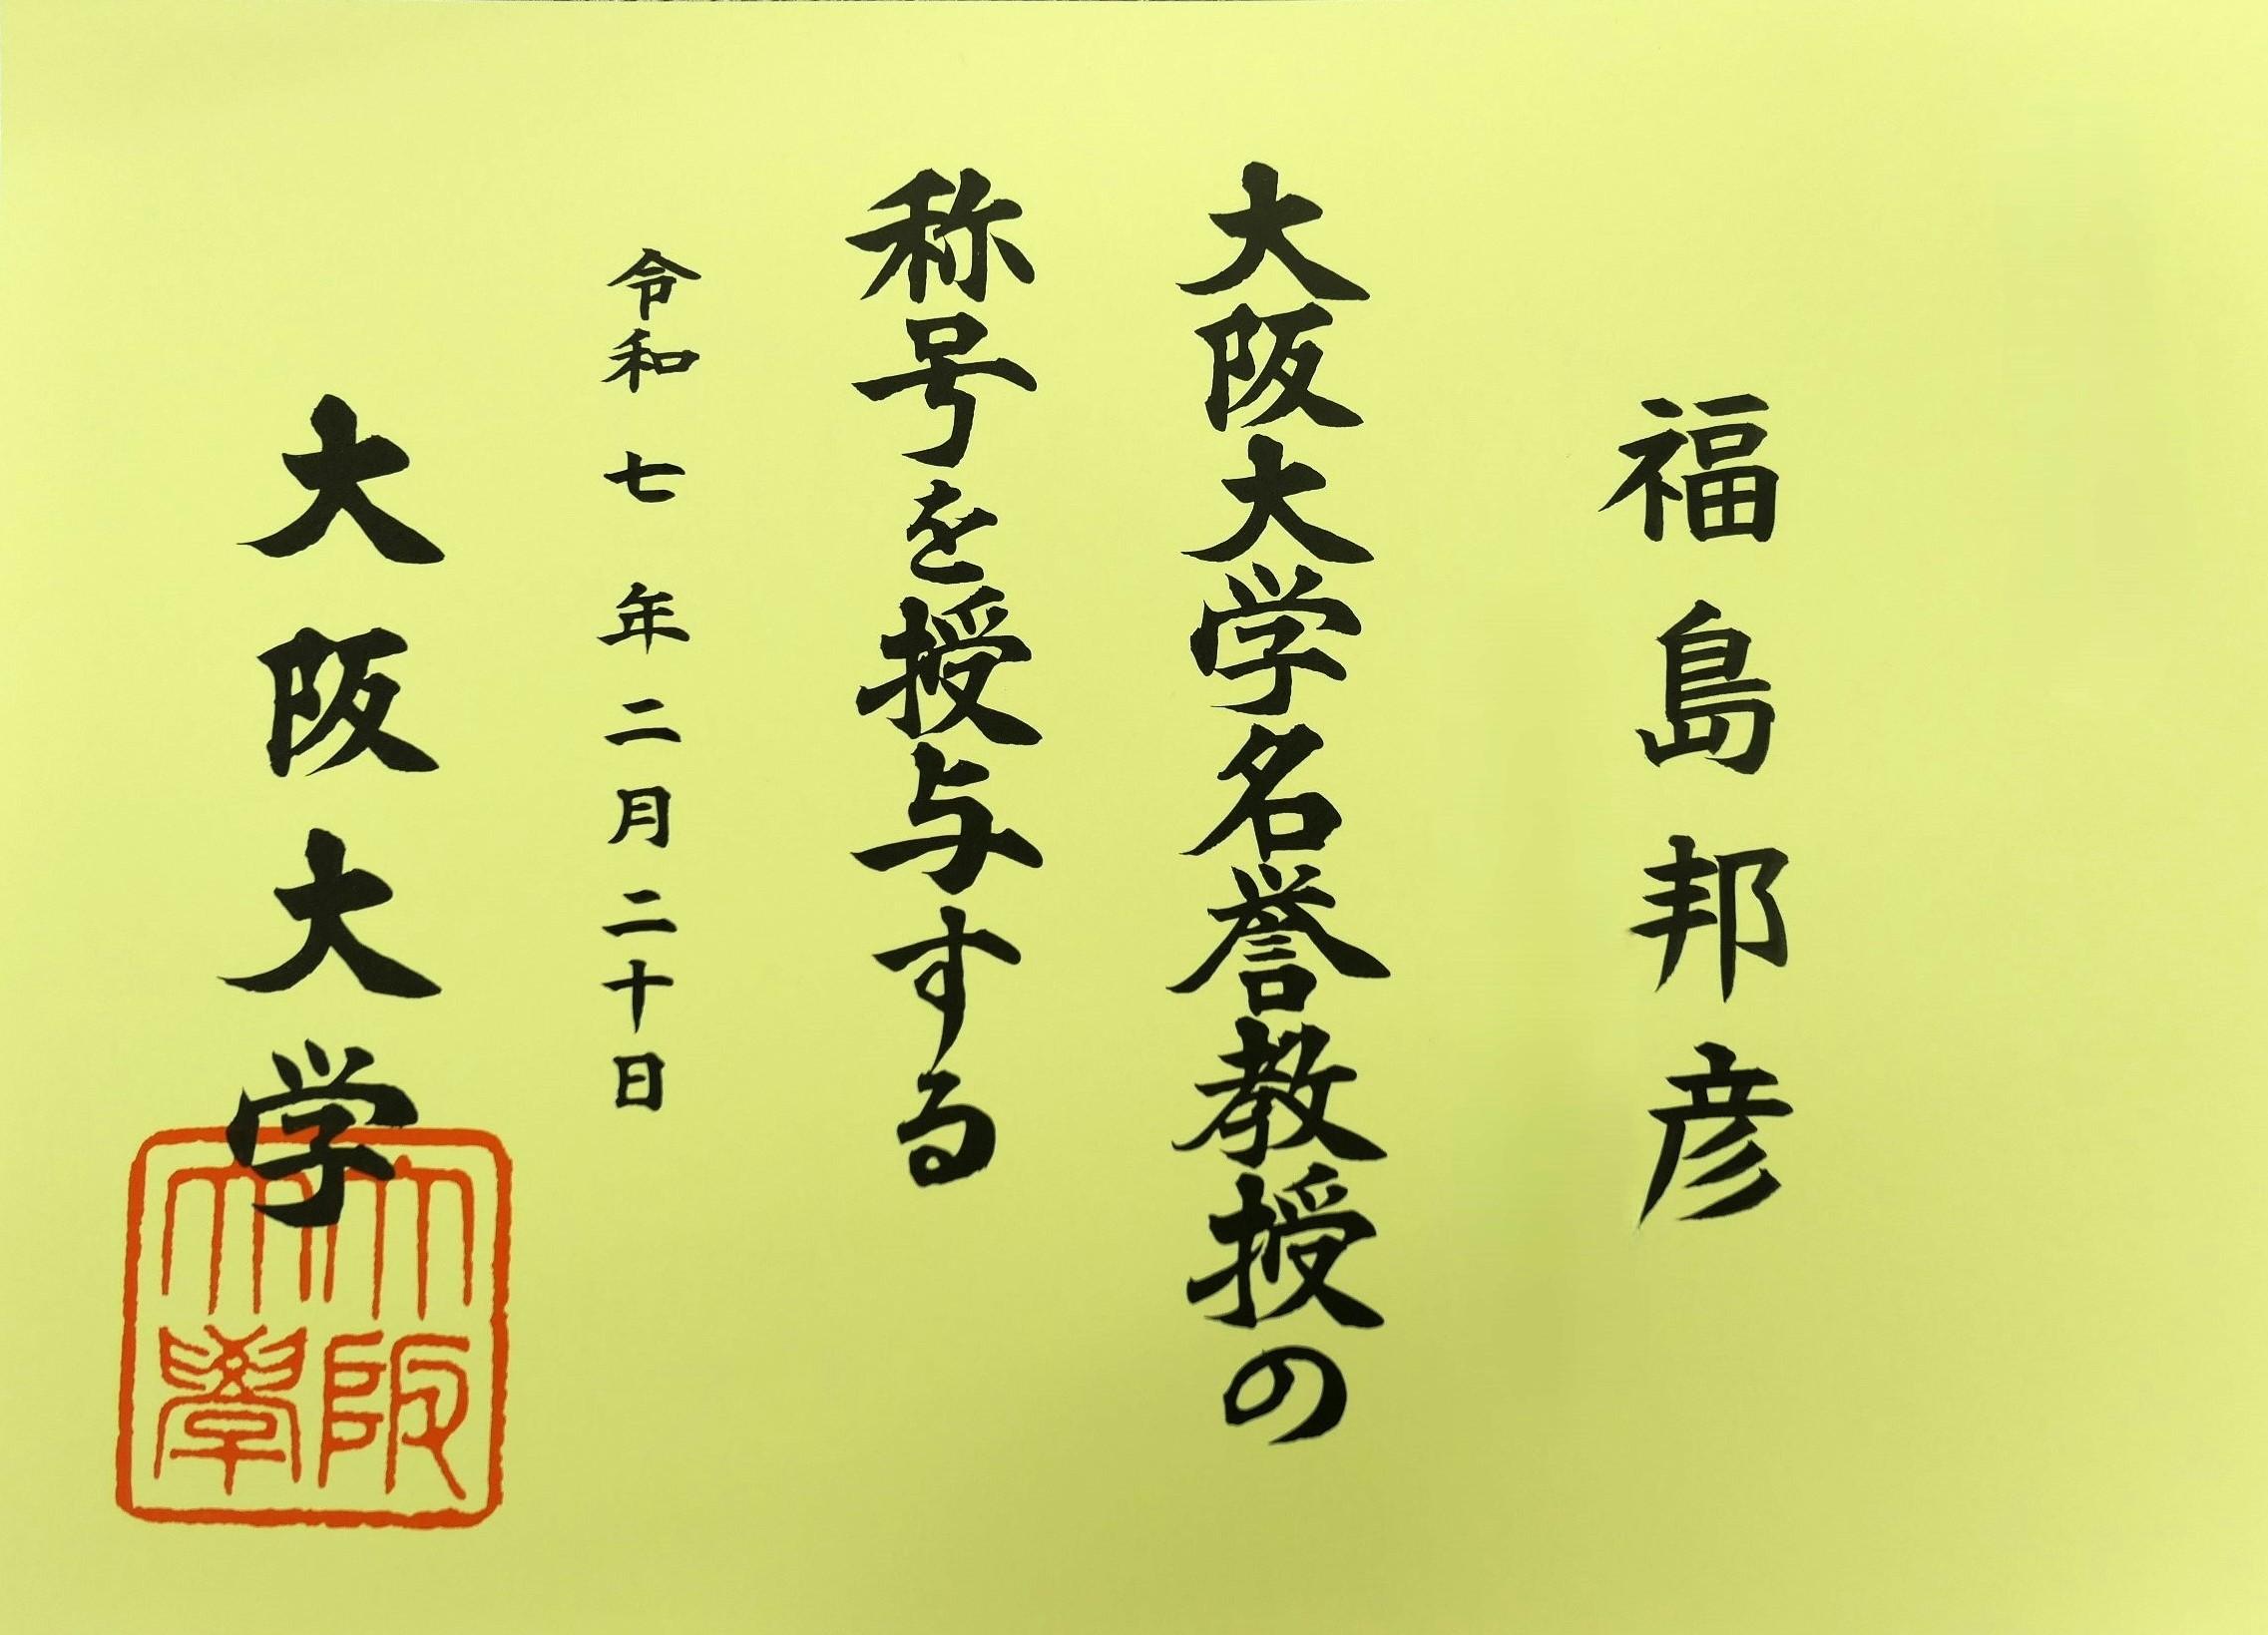 福島邦彦
大阪大学名誉教授の
称号を授与する
令和七年二月二十日
大阪大学
大阪
大學